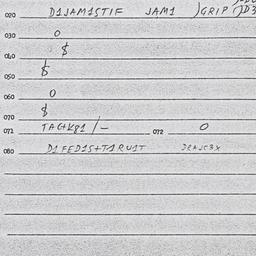 020 D1JAM1STIF JAM1 )GRIP
030 0
040 $
050 $
060 0
070 $
071 TAG+K81 /- 072 0
080 D1FED1S+T1RU1T DRAWC3X